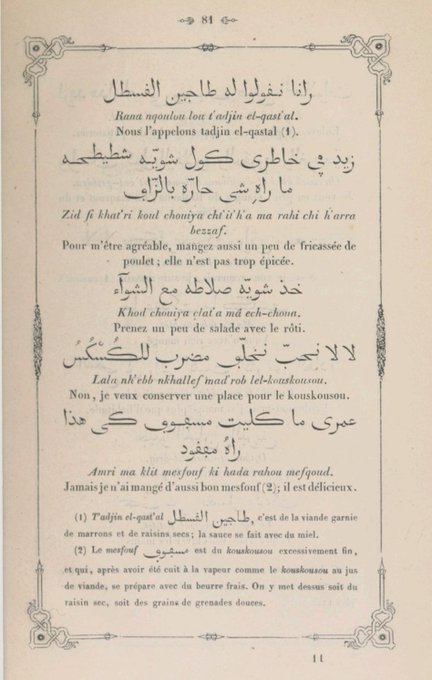 81
رانا نقولوا له طاجين القسطل
Rana nqoulou lou t'adjin el-qast'al.
Nous l'appelons tadjin el-qastal (1).
زيد في خاطري كول شويّه شطيطحه
ما راهِ شي حارّه بالزّاف
Zid fi khat'ri koul chouiya cht'it'h'a ma rahi chi h'arra
bezzaf.
Pour m'être agréable, mangez aussi un peu de fricassée de
poulet; elle n'est pas trop épicée.
خذ شويّه صلاطه مع الشوآء
Khod chouiya clat'a mâ ech-choua.
Prenez un peu de salade avec le rôti.
لا لا نحبّ نخلّف مضرب للكُسْكُسُ
Lala nh'ebb nkhallef mad'rob lel-kouskousou.
Non, je veux conserver une place pour le kouskousou.
عمري ما كليت مسفوف كي هذا
راهُ مفقود
Amri ma klit mesfouf ki hada rahou mefqoud.
Jamais je n'ai mangé d'aussi bon mesfouf (2); il est délicieux.
(1) T'adjin el-qast'al طاجين القسطل, c'est de la viande garnie
de marrons et de raisins secs; la sauce se fait avec du miel.
(2) Le mesfouf مسفوف est du kouskousou excessivement fin,
et qui, après avoir été cuit à la vapeur comme le kouskousou au jus
de viande, se prépare avec du beurre frais. On y met dessus soit du
raisin sec, soit des grains de grenades douces.
11